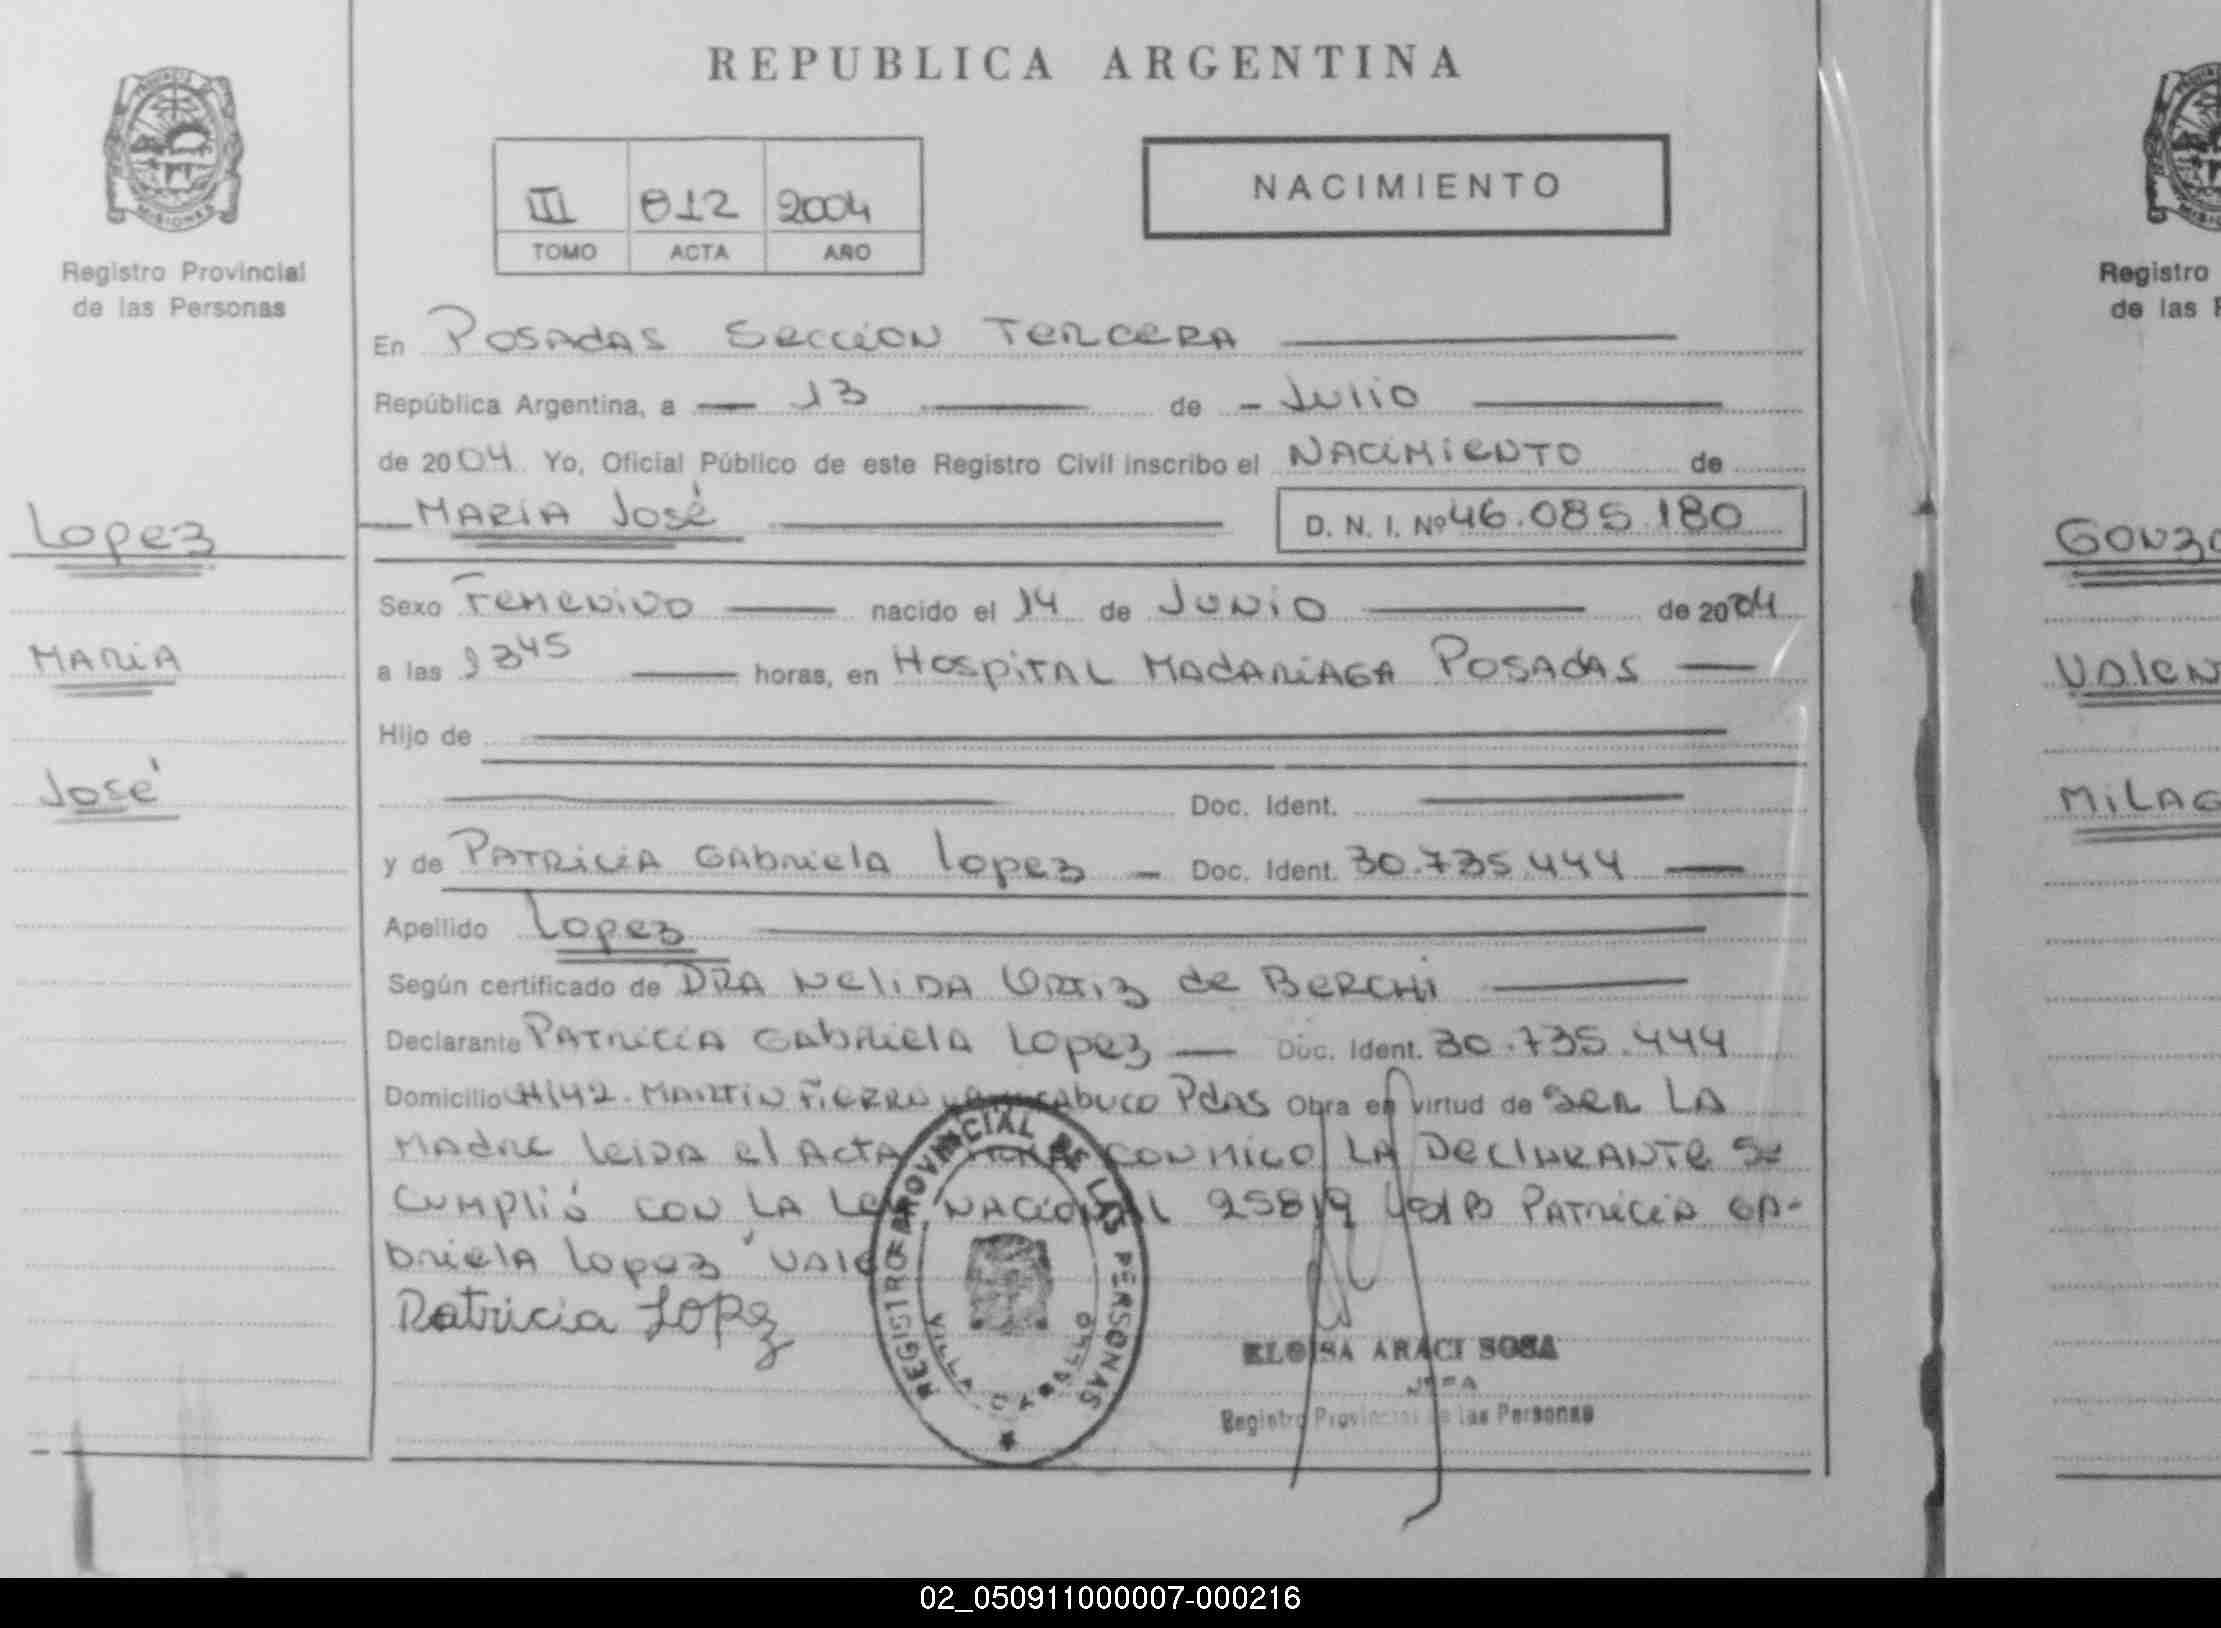 REPUBLICA ARGENTINA
MISIONES
Registro Provincial
de las Personas
III 812 2004
TOMO ACTA AÑO
NACIMIENTO
En Posadas Sección Tercera
República Argentina, a 13 de Julio
de 2004 Yo, Oficial Público de este Registro Civil inscribo el NACIMIENTO de
MARIA José D. N. I. Nº 46.085.180
Lopez
MARIA
José
Sexo Femenino nacido el 14 de Junio de 2004
a las 1345 horas, en Hospital Madariaga Posadas
Hijo de
Doc. Ident.
y de Patricia Gabriela Lopez Doc. Ident. 30.735.444
Apellido Lopez
Según certificado de DRA Nelida Ortiz de Berchi
Declarante Patricia Gabriela Lopez Doc. Ident. 30.735.444
Domicilio Martin Fierro Pdas Obra en virtud de ser LA
Madre leida el Acta conmigo LA Declarante Se
cumplió con LA Ley Nacional 25819 Patricia GA-
briela Lopez Vale
Patricia Lopez
REGISTRO PROVINCIAL DE LAS PERSONAS
VILLA CABELLO
ELOISA ARACI SOSA
JEFA
Registro Provincial de las Personas
Registro
de las
Gonza
Valen
Milag
02_050911000007-000216